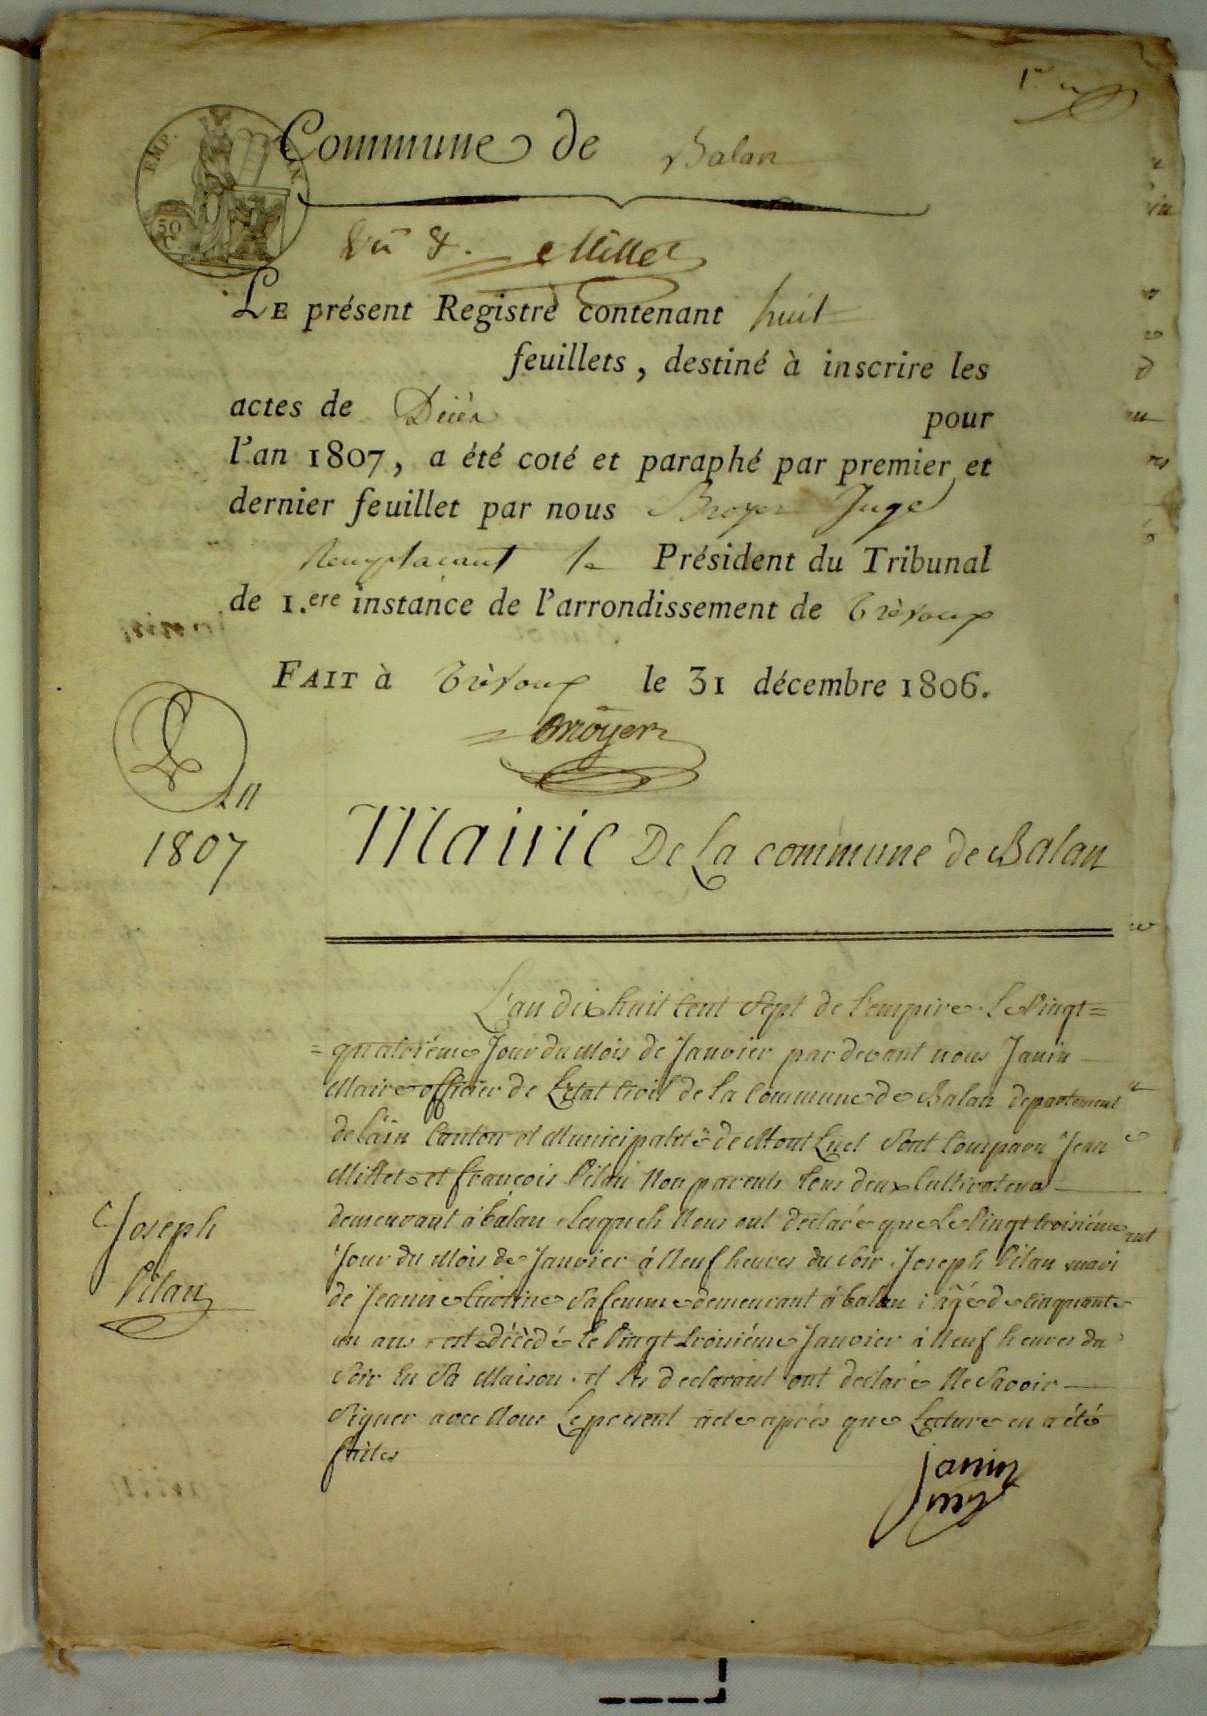 1er
EMP. 
50 C.
Commune de Balan
Vu &. Millet
LE présent Registre contenant huit
feuillets, destiné à inscrire les
actes de Décès pour
l'an 1807, a été coté et paraphé par premier et
dernier feuillet par nous Broyer Juge
Remplacant le Président du Tribunal
de 1.ere instance de l'arrondissement de Trévoux
FAIT à Trévoux le 31 décembre 1806.
Broyer
An
1807
Mairie De La commune de Balan
L'an dix huit Cent Sept de L'empire Le Vingt=
=quatorieme Jour du Mois de Janvier par devant nous Janin
Maire officier de L'etat Civil de La Commune de Balan departement
de L'ain Canton et Municipalité de Mont Luel Sont Comparu Jean
Millet et françois Pilan Non parents tous deux Cultivateur
demeurant á balan Lesquels Nous ont declaré que Le Vingt troisiéme
Jour du Mois de Janvier á Neuf heures du Soir Joseph Pilan mari
de Jeanne Sa femme demeurant á balan agé de cinquante
un ans est décédé Le Vingt troisiéme Janvier á Neuf heures du
Soir En Sa Maison et Les declarant ont declaré Ne Savoir
Signer avec Nous Le present acte aprés que Lecture en a été
faites
Joseph
Pilan
janin